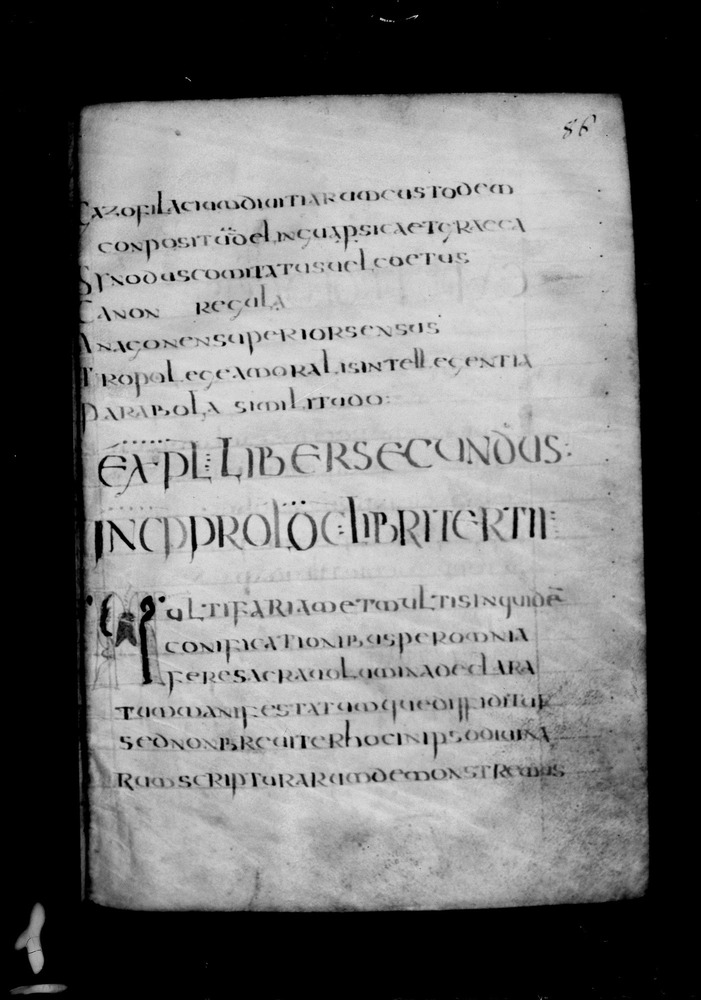 86
GAZOFILACIUMDIUITIARUMCUSTODEM
CONPOSITUDELINGUAPSICAETGRAECA
SYNODUSCOMITATUSUELCOETUS
CANON REGULA
ANAGONENSUPERIORSENSUS
TROPOLEGEAMORALISINTELLEGENTIA
PARABOLA SIMILITUDO:
EXPL LIBERSECUNDUS:
INCPPROLOGLIBRITERTII
MULTIFARIAMETMULTISINQUIDĒ
CONIFICATIONIBUSPEROMNIA
FERESACRAUOLUMINADECLARA
TUMMANIFESTATUMQUEDIFFIDITUR
SEDNONBREUITERHOCINIPSODIUINA
RUMSCRIPTURARUMDEMONSTREMUS